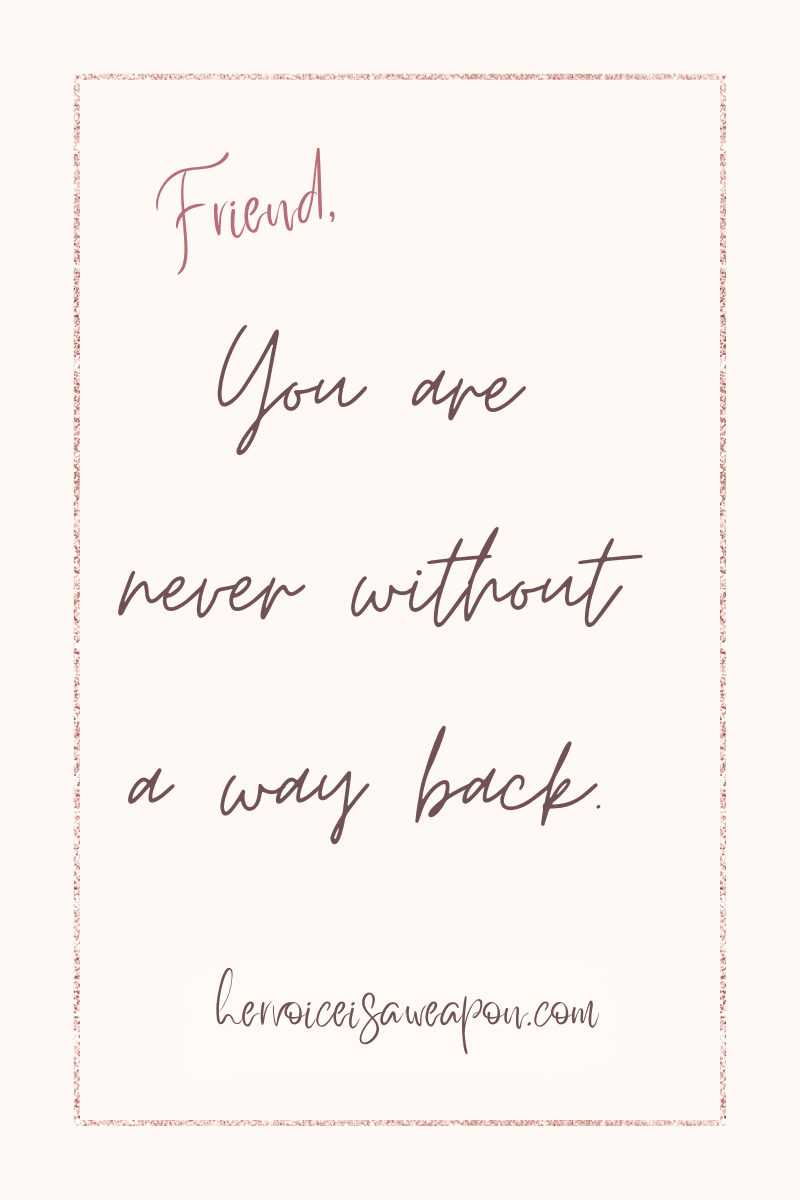 Friend,
You are
never without
a way back.
hervoiceisaweapon.com